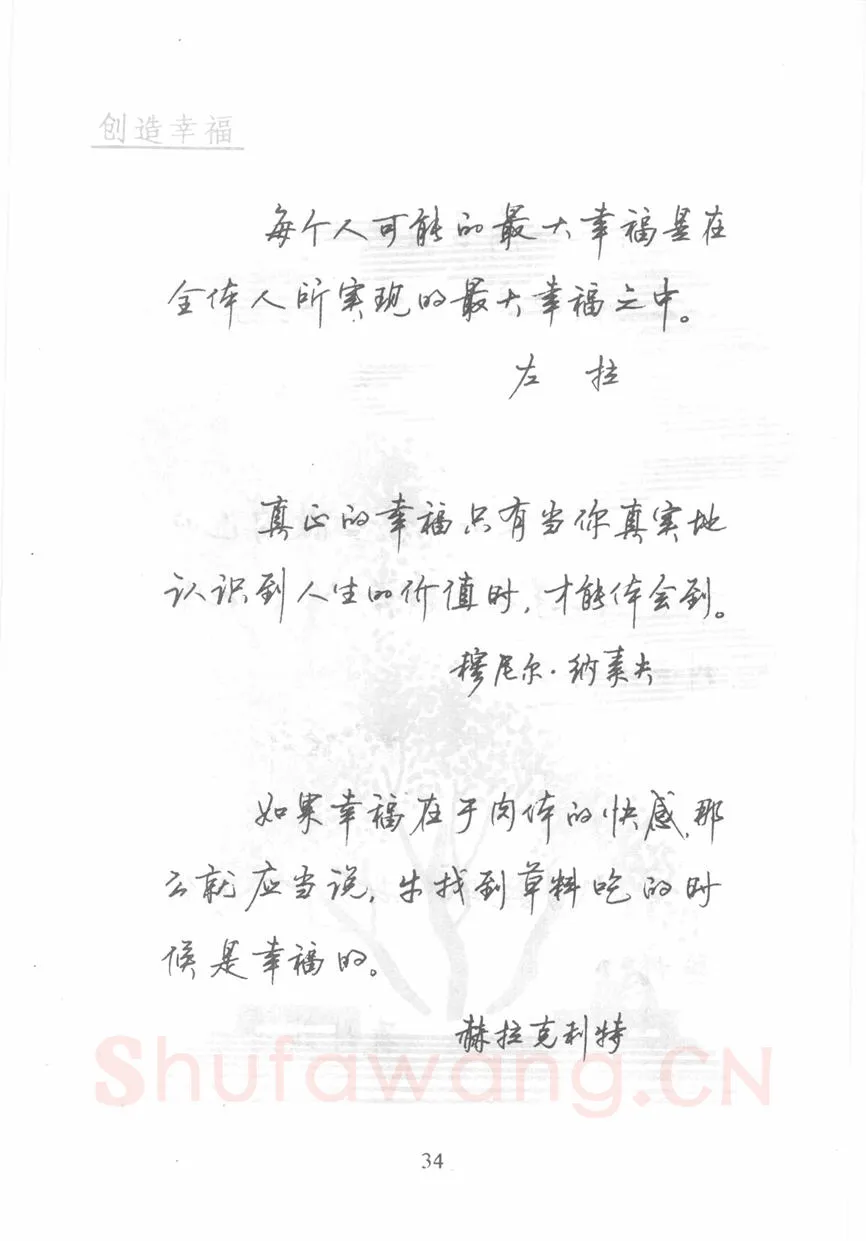 创造幸福
每个人可能的最大幸福是在
全体人所实现的最大幸福之中。
左 拉
真正的幸福只有当你真实地
认识到人生的价值时，才能体会到。
穆尼尔·纳素夫
如果幸福在于肉体的快感，那
么就应当说，牛找到草料吃的时
候是幸福的。
赫拉克利特
Shufawang.CN
34